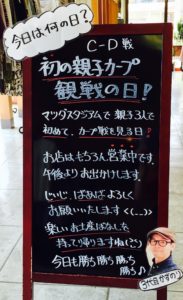 今日は何の日？
C-D戦
初の親子カープ
観戦の日！
マツダスタジアムで親子3人で
初めて、カープ戦を見る日！
お店はもちろん営業中です。
午後よりお出かけします。
じいじ、ばあば よろしく
お願いいたします<(_ _)>
楽しいお土産ばなしを
持って帰りますね(^^)
今日も勝ち勝ち勝ち
勝ち♪
3代目かずのり